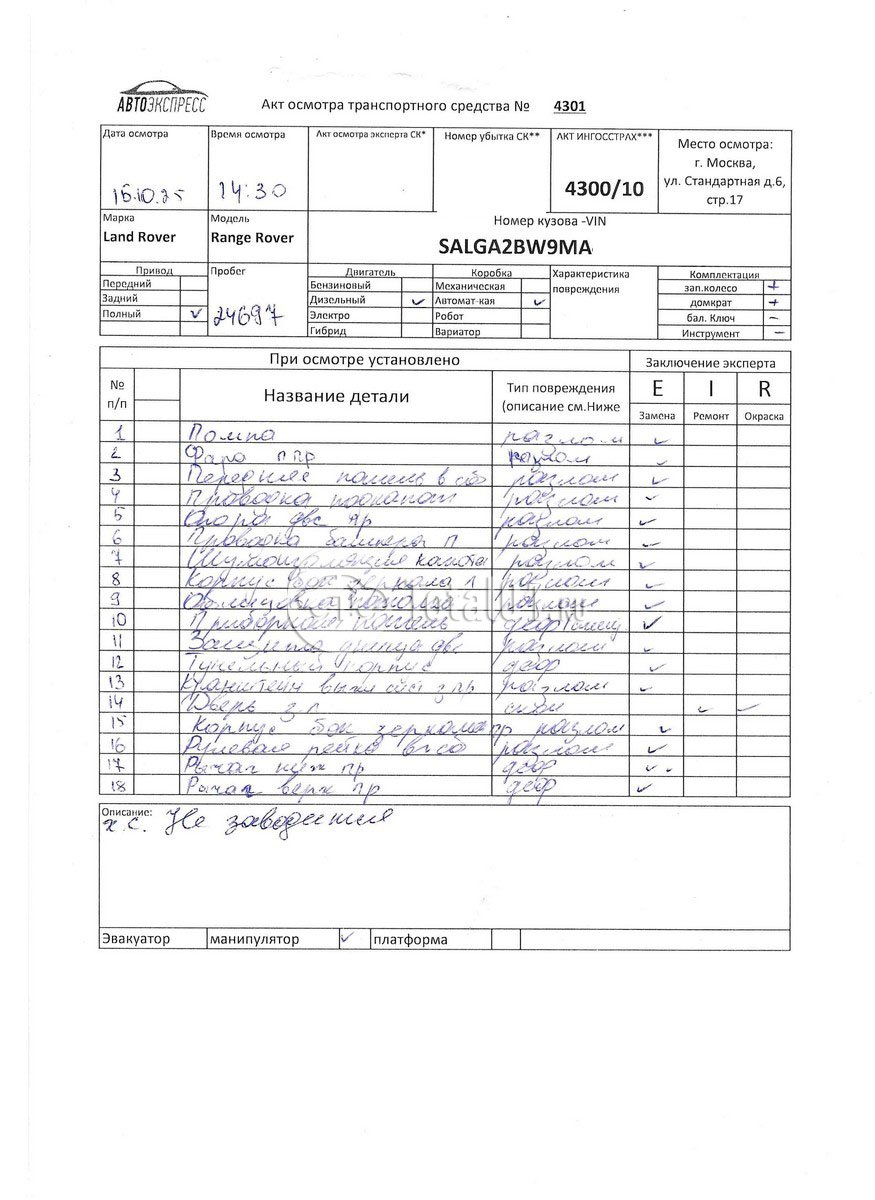 АВТОЭКСПРЕСС
Акт осмотра транспортного средства № 4301
Дата осмотра Время осмотра Акт осмотра эксперта СК* Номер убытка СК** АКТ ИНГОССТРАХ*** Место осмотра:
г. Москва,
16.10.25 14:30 4300/10 ул. Стандартная д.6,
стр.17
Марка Модель Номер кузова -VIN
Land Rover Range Rover SALGA2BW9MA
Привод Пробег Двигатель Коробка Характеристика повреждения Комплектация
Передний Бензиновый Механическая зап.колесо +
Задний Дизельный ✓ Автомат-кая ✓ домкрат +
Полный ✓ 24697 Электро Робот бал. Ключ –
Гибрид Вариатор Инструмент –
При осмотре установлено Заключение эксперта
№ п/п Название детали Тип повреждения (описание см.Ниже E I R
Замена Ремонт Окраска
1 Помпа разлом ✓
2 Фара п пр разлом ✓
3 Передняя панель в сб разлом ✓
4 Проводка разлом ✓
5 Опора двс пр разлом ✓
6 Проводка бампера п разлом ✓
7 Шумоизоляция капота разлом ✓
8 Корпус бок зеркала л разлом ✓
9 Облицовка разлом ✓
10 Приборная панель деф ✓
11 Защита днища двс разлом ✓
12 корпус деф ✓
13 Кронштейн з пр разлом ✓
14 Дверь з л ✓ ✓
15 Корпус бок зеркала пр разлом ✓
16 Рулевая рейка в сб разлом ✓
17 Рычаг ниж пр деф ✓
18 Рычаг верх пр деф ✓
Описание:
х.с. Не заводится
Эвакуатор манипулятор ✓ платформа